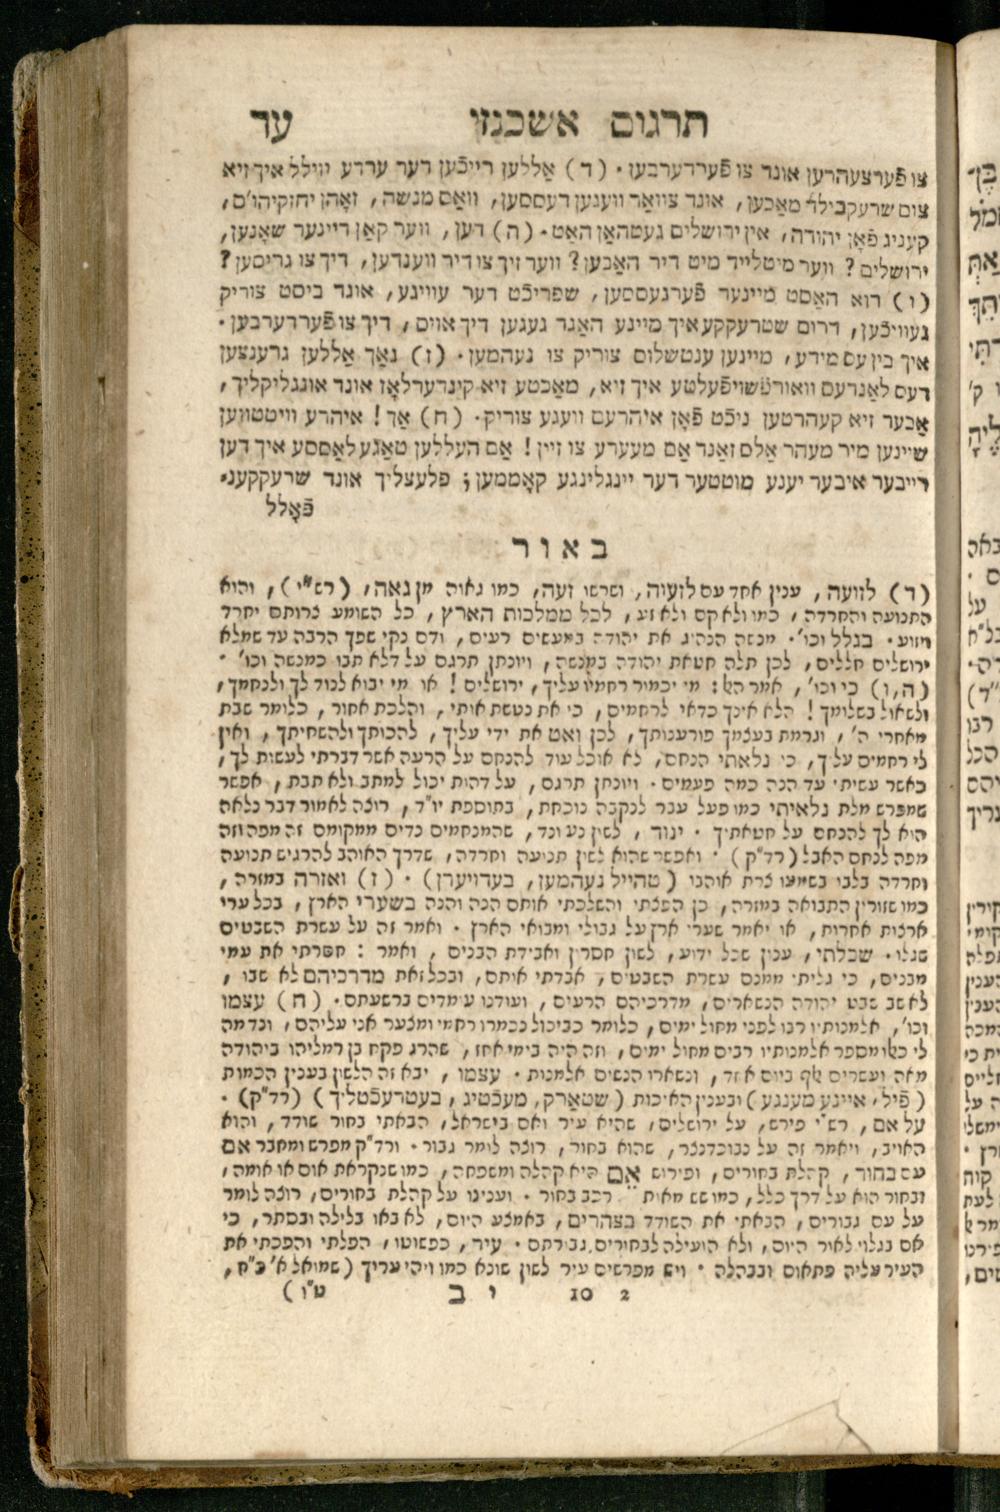 תרגום אשכנזי עד
צו פֿערצעהרען אונד צו פֿערדערבען. (ד) אַללען רייכֿען דער ערדע ווילל איך זיא
צום שרעקבילד מאַכען, אונד צוואַר וועגען דעססען, וואַס מנשה, זאָהן יחזקיהו'ס,
קעניג פֿאָן יהודה, אין ירושלים געטהאַן האַט. (ה) דען, ווער קאַן דיינער שאָנען,
ירושלים? ווער מיטלייד מיט דיר האַבען? ווער זיך צו דיר ווענדען, דיך צו גריסען?
(ו) דוא האַסט מיינער פֿערגעססען, שפריכֿט דער עוויגע, אונד ביסט צוריק
געוויכֿען, דרום שטרעקקע איך מיינע האַנד געגען דיך אויס, דיך צו פֿערדערבען.
איך בין עס מידע, מיינען ענטשלוס צוריק צו נעהמען. (ז) נאָך אַללען גרענצען
דעס לאַנדעס וואורפֿשויפֿעלטע איך זיא, מאַכטע זיא קינדערלאָז אונד אונגליקליך,
אָבער זיא קעהרטען ניכֿט פֿאָן איהרעם וועגע צוריק. (ח) אַך! איהרע וויטטווען
שיינען מיר מעהר אַלס זאַנד אַם מעערע צו זיין! אַם העללען טאָגע לאַססע איך דען
רייבער איבער יענע מוטטער דער יינגלינגע קאָממען; פלעצליך אונד שרעקקענ-
פֿאָלל
באור
(ד) לזועה, ענין אחד עם לזעוה, ושרשו זעה, כמו גאוה מן גאה, (רש"י), והוא
התנועה והחרדה, כמו ולא קם ולא זע, לכל ממלכות הארץ, כל השומע צרותם יחרד
ויזוע. בגלל וכו'. מנשה הנהיג את יהודה במעשים רעים, ודם נקי שפך הרבה עד שמלא
ירושלים חללים, לכן תלה חטאת יהודה במנשה, ויונתן תרגם על דלא תבו כמנשה וכו'.
(ה, ו) כי וכו', אמר הש: מי יכמור רחמיו עליך, ירושלים! או מי יבוא לנוד לך ולנחמך,
ולשאול בשלומך! הלא אינך כדאי לרחמים, כי את נטשת אותי, והלכת אחור, כלומר שבת
מאחרי ה', וגרמת בעצמך פורענותך, לכן ואט את ידי עליך, להכותך ולהשחיתך, ואין
לי רחמים עליך, כי נלאתי הנחם, לא אוכל עוד להנחם על הרעה אשר דברתי לעשות לך,
כאשר עשיתי עד הנה כמה פעמים. ויונתן תרגם, על דהות יכול למתב ולא תבת, אפשר
שמפרש מלת נלאיתי כמו פעל עבר לנקבה נוכחת, בתוספת יו"ד, רוצה לאמור דבר נלאה
הוא לך להנחם על חטאתיך. ינוד, לשון נע ונד, שהמנחמים נדים ממקומם זה מפה וזה
מפה לנחם האבל (רד"ק). ואפשר שהוא לשון תנועה וחרדה, שדרך האוהב להרגיש תנועה
וחרדה בלבו בשמעו צרת אוהבו (טהייל נעהמען, בעדויערן). (ז) ואזרה במזרה,
כמו שזורין התבואה במזרה, כן הפצתי והשלכתי אותם הנה והנה בשערי הארץ, בכל ערי
ארצות אחרות, או יאמר שערי ארץ על גבולי ומבואי הארץ. ואמר זה על עשרת השבטים
שגלו. שכלתי, ענין שכל ידוע, לשון חסרון ואבידת הבנים, ואמר: חסרתי את עמי
מבנים, כי גליתי ממכם עשרת השבטים, אבדתי אותם, ובכל זאת מדרכיהם לא שבו,
לא שב שבט יהודה הנשארים, מדרכיהם הרעים, ועודנו עומדים ברשעתם. (ח) עצמו
וכו', אלמנותיו רבו לפני מחול ימים, כלומר כביכול נכמרו רחמי ומצער אני עליהם, ונדמה
לי כאלו מספר אלמנותיו רבים מחול ימים, וזה היה בימי אחז, שהרג פקח בן רמליהו ביהודה
מאה ועשרים אלף ביום אחד, ונשארו הנשים אלמנות. עצמו, יבא זה הלשון בענין הכמות
(פֿיל, איינע מענגע) ובענין האיכות (שטאַרק, מעכֿטיג, בעטרעכֿטליך) (רד"ק).
על אם, רש"י פירש, על ירושלים, שהיא עיר ואם בישראל, הבאתי בחור שודד, והוא
האויב, ויאמר זה על נבוכדנצר, שהוא בחור, רוצה לומר גבור. ורד"ק מפרש ומחבר אם
עם בחור, קהלת בחורים, ופירוש אֵם היא קהלה ומשפחה, כמו שנקראת אום או אומה,
ובחור הוא על דרך כלל, כמו שש מאות רכב בחור. וענינו על קהלת בחורים, רוצה לומר
על עם גבורים, הבאתי את השודד בצהרים, באמצע היום, לא באו בלילה ובסתר, כי
אם בגלוי לאור היום, ולא הועילה לבחורים גבורתם. עיר, כפשוטו, הפלתי והפכתי את
העיר עליה פתאום ובבהלה. ויש מפרשים עיר לשון שונא כמו ויהי עריך (שמואל א' כ"ח,
י ב 10 2 ט"ו)